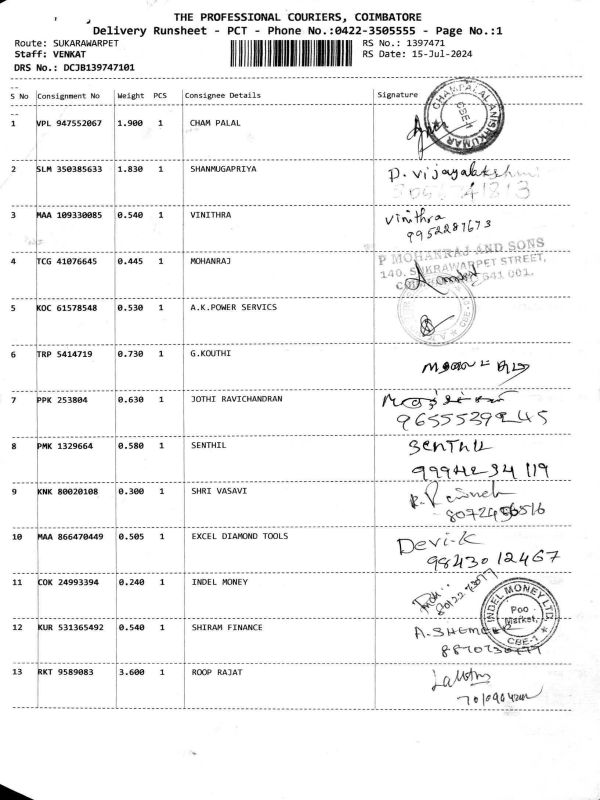 THE PROFESSIONAL COURIERS, COIMBATORE
Delivery Runsheet - PCT - Phone No.:0422-3505555 - Page No.:1
Route: SUKARAWARPET RS No.: 1397471
Staff: VENKAT RS Date: 15-Jul-2024
DRS No.: DCJB139747101
S No Consignment No Weight PCS Consignee Details Signature
CHAMPALAL ANISHKUMAR CBE-1
1 VPL 947552067 1.900 1 CHAM PALAL
2 SLM 350385633 1.830 1 SHANMUGAPRIYA P. Vijayalakshmi
3 MAA 109330085 0.540 1 VINITHRA Vinithra
9952287673
4 TCG 41076645 0.445 1 MOHANRAJ P MOHANRAJ AND SONS
140, SUKRAWARPET STREET,
641 001.
5 KOC 61578548 0.530 1 A.K.POWER SERVICS
6 TRP 5414719 0.730 1 G.KOUTHI
7 PPK 253804 0.630 1 JOTHI RAVICHANDRAN
8 PMK 1329664 0.580 1 SENTHIL SENTHIL
9994294119
9 KNK 80020108 0.300 1 SHRI VASAVI
10 MAA 866470449 0.505 1 EXCEL DIAMOND TOOLS Devi.K
9843012467
11 COK 24993394 0.240 1 INDEL MONEY
INDEL MONEY LTD. Poo Market, CBE-1
12 KUR 531365492 0.540 1 SHIRAM FINANCE
13 RKT 9589083 3.600 1 ROOP RAJAT